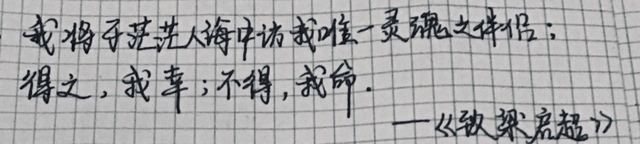 我将于茫茫人海中访我唯一灵魂之伴侣；
得之，我幸；不得，我命.
—《致梁启超》